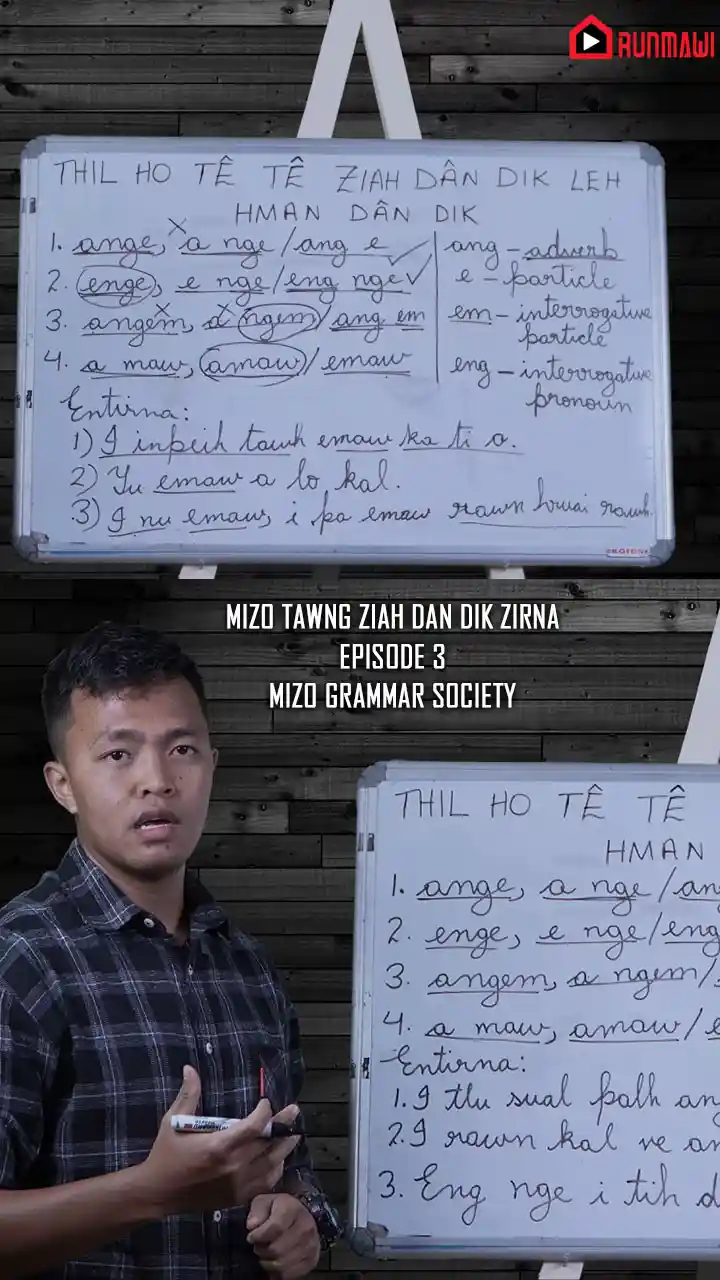 RUNMAWI
THIL HO TÊ TÊ ZIAH DÂN DIK LEH
HMAN DÂN DIK
1. ange, a nge / ang e
2. enge, e nge / eng nge
3. angem, a ngem / ang em
4. a maw, amaw / emaw
ang – adverb
e – particle
em – interrogative
particle
eng – interrogative
pronoun
Entirna:
1) I inpeih tawh emaw ka ti a.
2) Yu emaw a lo kal.
3) I nu emaw, i pa emaw rawn hruai rawh.
MIZO TAWNG ZIAH DAN DIK ZIRNA
EPISODE 3
MIZO GRAMMAR SOCIETY
THIL HO TÊ TÊ
HMAN
1. ange, a nge / an
2. enge, e nge / eng
3. angem, a ngem /
4. a maw, amaw / e
Entirna:
1. I tlu sual palh an
2. I rawn kal ve an
3. Eng nge i tih d